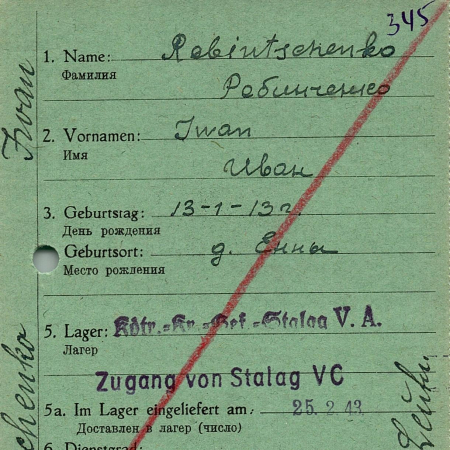 345
1. Name: Rabintschenko
Фамилия
Робинченко
2. Vornamen: Iwan
Имя
Иван
3. Geburtstag: 13-1-13г.
День рождения
Geburtsort: д. Енны
Место рождения
5. Lager: Kdtr.-Kr.-Gef.-Stalag V. A.
Лагер
Zugang von Stalag VC
5a. Im Lager eingeliefert am: 25. 2. 43
Доставлен в лагер (число)
6. Dienstgrad:
Iwan
chenko